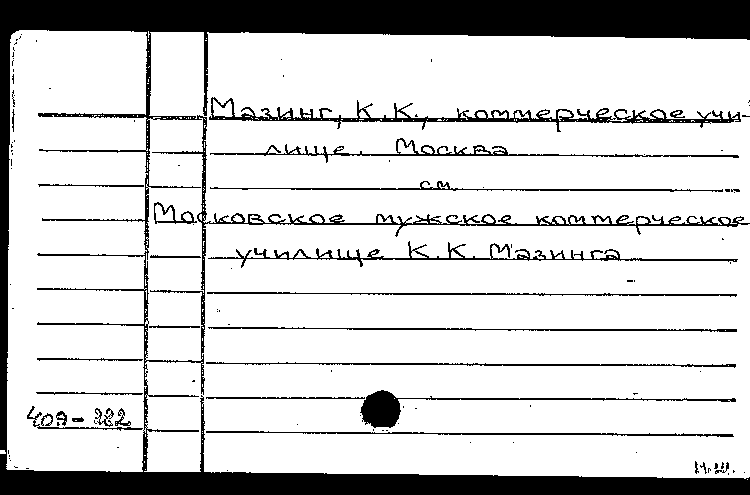 Мазинг, К.К., коммерческое учи-
лище. Москва
см.
Московское мужское коммерческое
училище К.К. Мазинга